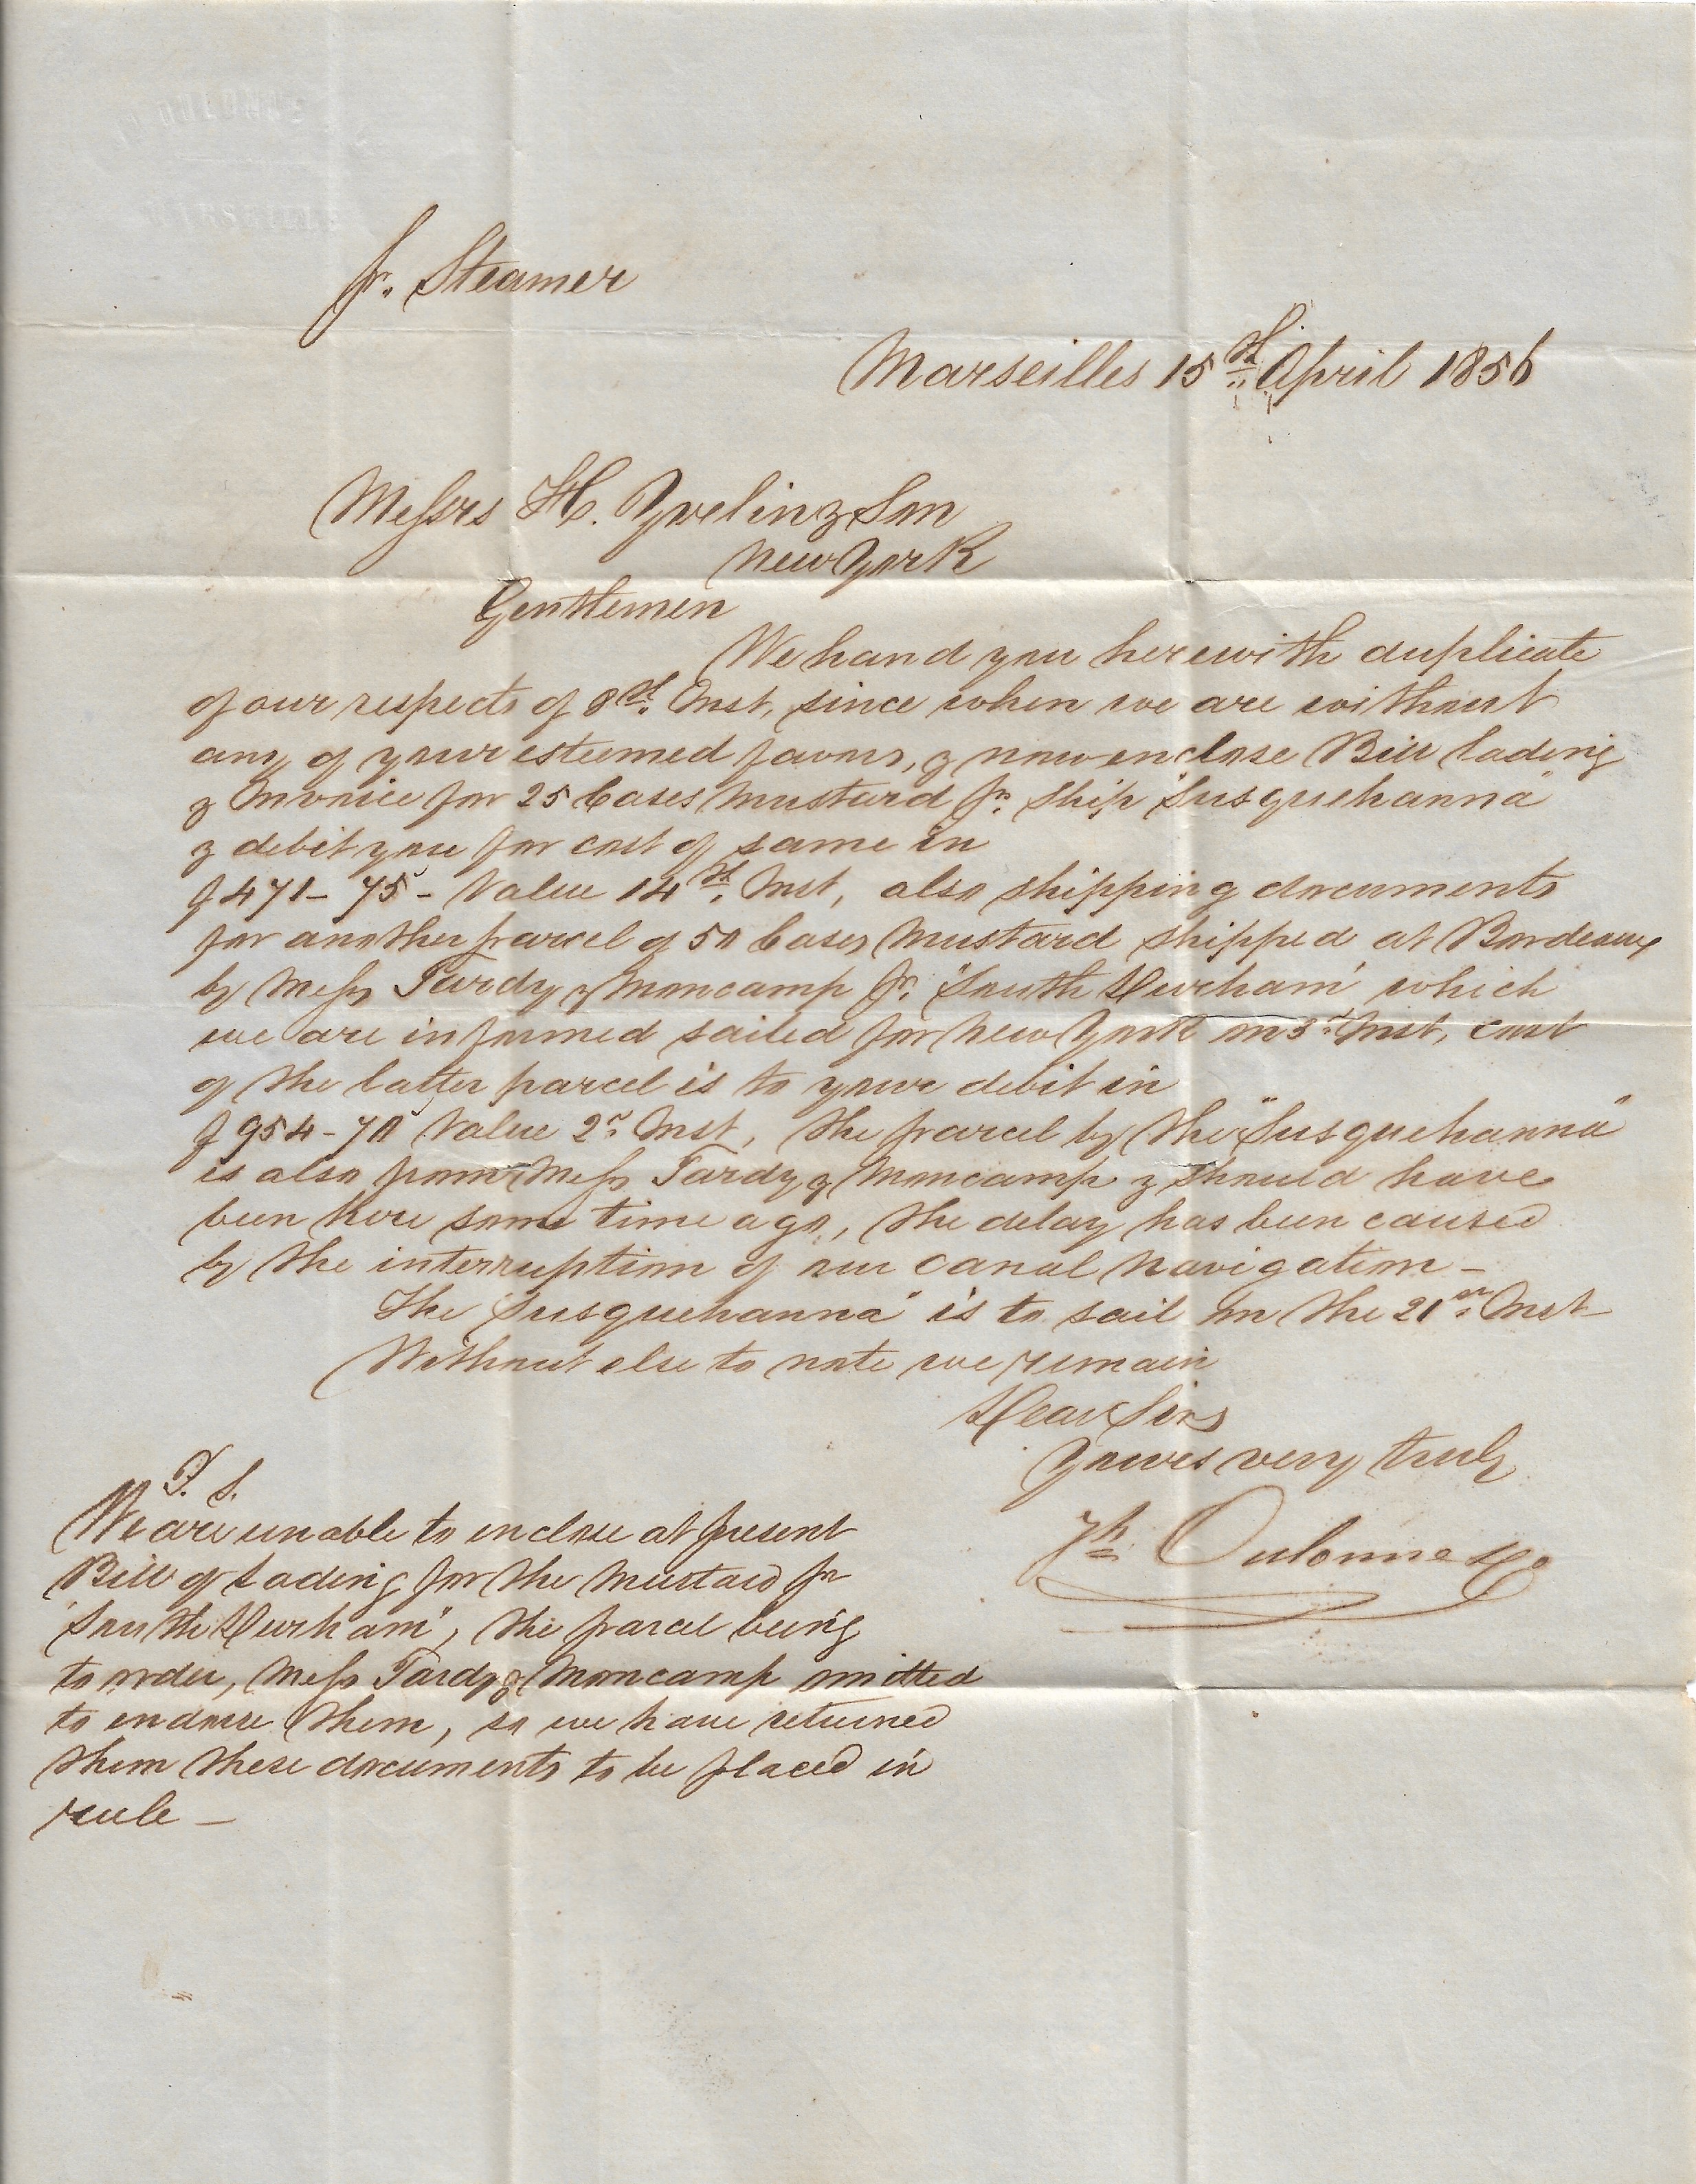 pr. Steamer
Marseilles 15th April 1856
Messrs H. Yvelin & Son
New York
Gentlemen
We hand you herewith duplicate
of our respects of 8th. Inst, since when we are without
any of your esteemed favors, & now enclose Bill lading
& Invoice for 25 Cases Mustard pr. Ship "Susquehanna"
& debit you for cost of same in
f 471-75- Value 14th. Inst, also shipping documents
for another parcel of 50 Cases Mustard shipped at Bordeaux
by Mess Tardy & Moncamp pr. "South Durham" which
we are informed sailed for New York on 3d. Inst, cost
of the latter parcel is to your debit in
f 954-70 Value 2d. Inst, the parcel by the "Susquehanna"
is also from Mess Tardy & Moncamp & should have
been here some time ago, the delay has been caused
by the interruption of our canal navigation -
The "Susquehanna" is to sail on the 21st. Inst
Without else to note we remain
Dear Sirs
Yours very truly
Dulonne & Co
P. S.
We are unable to enclose at present
Bill of Lading for the Mustard pr
"South Durham", the parcel being
to order, Mess Tardy & Moncamp omitted
to endorse them, so we have returned
them these documents to be placed in
rule -